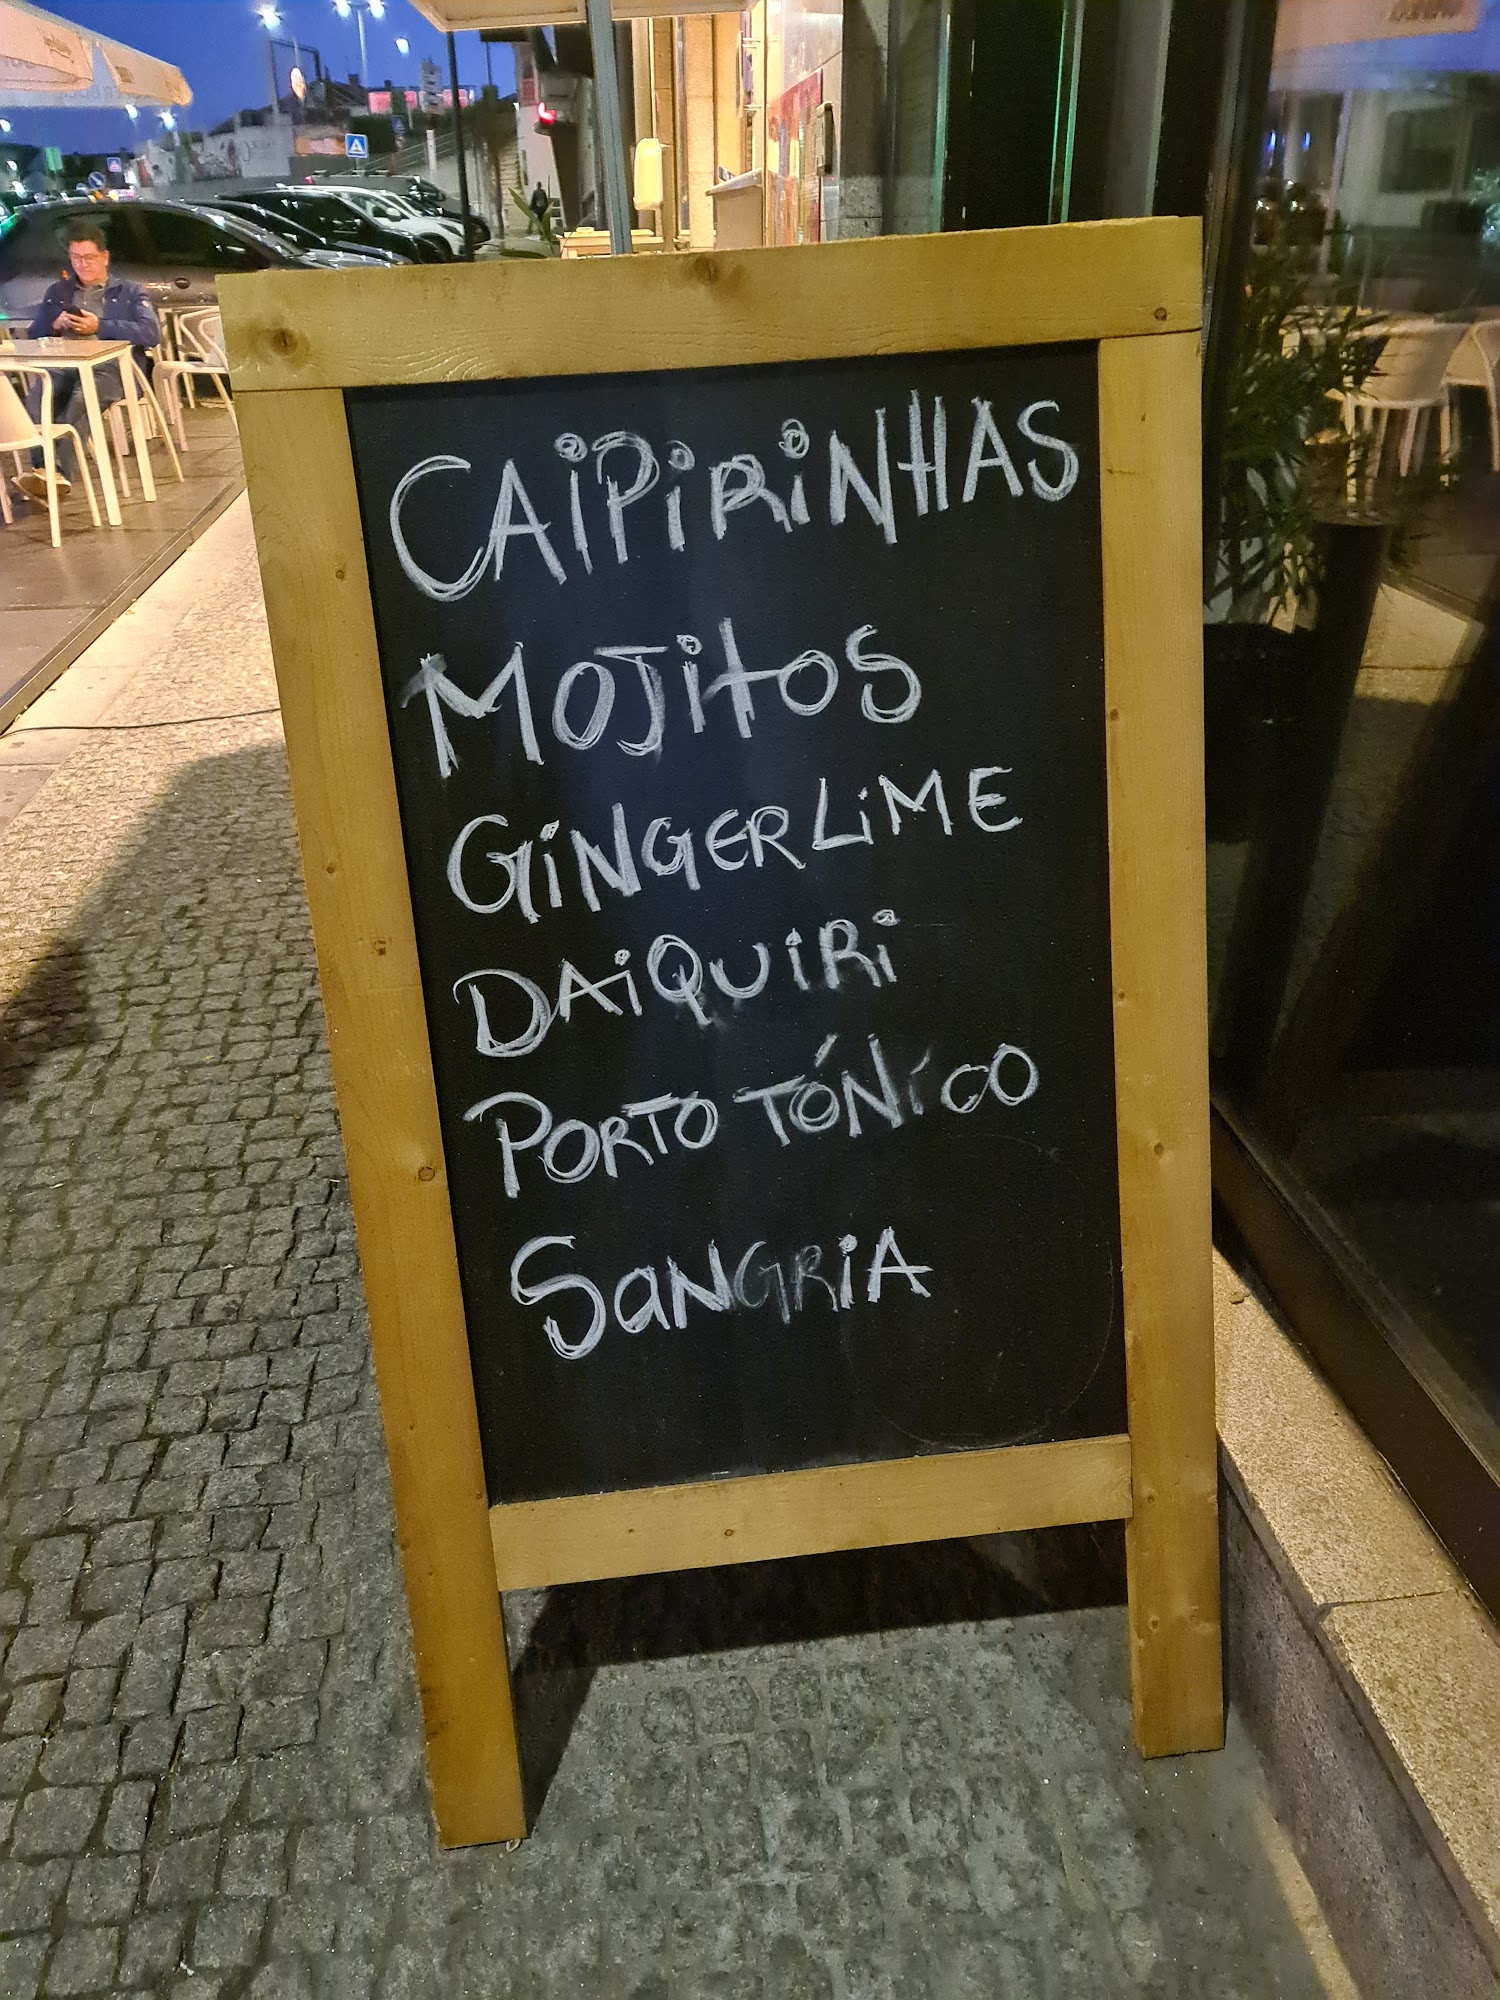 CAIPIRINHAS
MOJITOS
GINGER LIME
DAIQUIRI
PORTO TÓNICO
SANGRIA